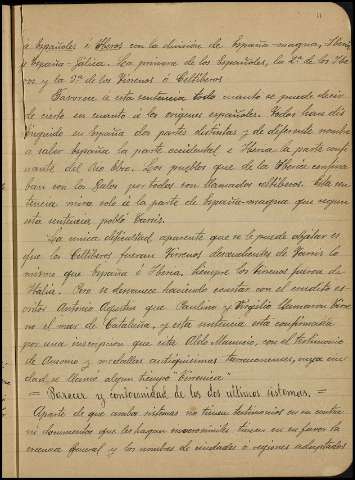 á Españoles é Iberos con la división de España-magna, Iberia
y España-Gálica. La primera de los Españoles, la 2ª de los Ibe
ros y la 3ª de los Tirrenos ó Celtíberos
Favorece á esta sentencia todo cuanto se puede decir
de cierto en cuanto á los orígenes españoles. Todos han dis
tinguido en España dos partes distintas y de diferente nombre
á saber España la parte occidental é Iberia la parte confi
nante del rio Ebro. Los pueblos que de la Iberia confina
ban con los Galos por todos son llamados celtíberos. Esta sen
tencia mira solo á la parte de España-magna que segun
esta sentencia pobló Tarsis.
La unica dificultad aparente que se le puede objetar es
que los Celtíberos fueran Tirrenos descendientes de
mismo que España é Iberia, siempre los Tirrenos fueron de
Italia. Pero se desvanece haciendo constar con el erudito es
critor Antonio Agustin que Paulino y Virgilio llamaron Tirre
no el mar de Cataluña, y esta sentencia está confirmada
por una inscripcion que cita Aldo Manucio, con el testimonio
de Ausonio y medallas antiquisimas Tarraconenses, cuya ciu
dad se llamó algun tiempo "Tirrenica"
= Parecer y conformidad de los dos ultimos sistemas. =
Aparte de que ambos sistemas no tienen testimonios en su contra
ni documentos que los hagan inverosimiles tienen en su favor la
creencia general y los nombres de ciudades ó regiones adaptados